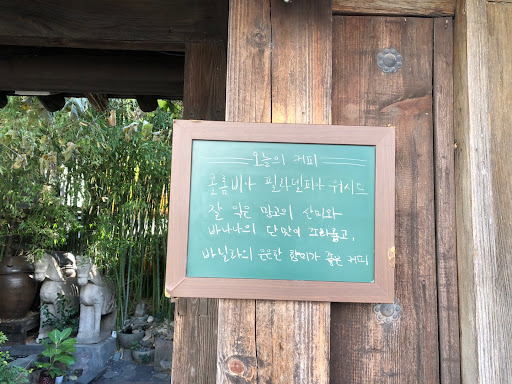 오늘의 커피
콜롬비아 필라델피아 워시드
잘 익은 망고의 산미와
바나나의 단맛이 부드럽고,
바닐라의 은은한 향미가 좋은 커피